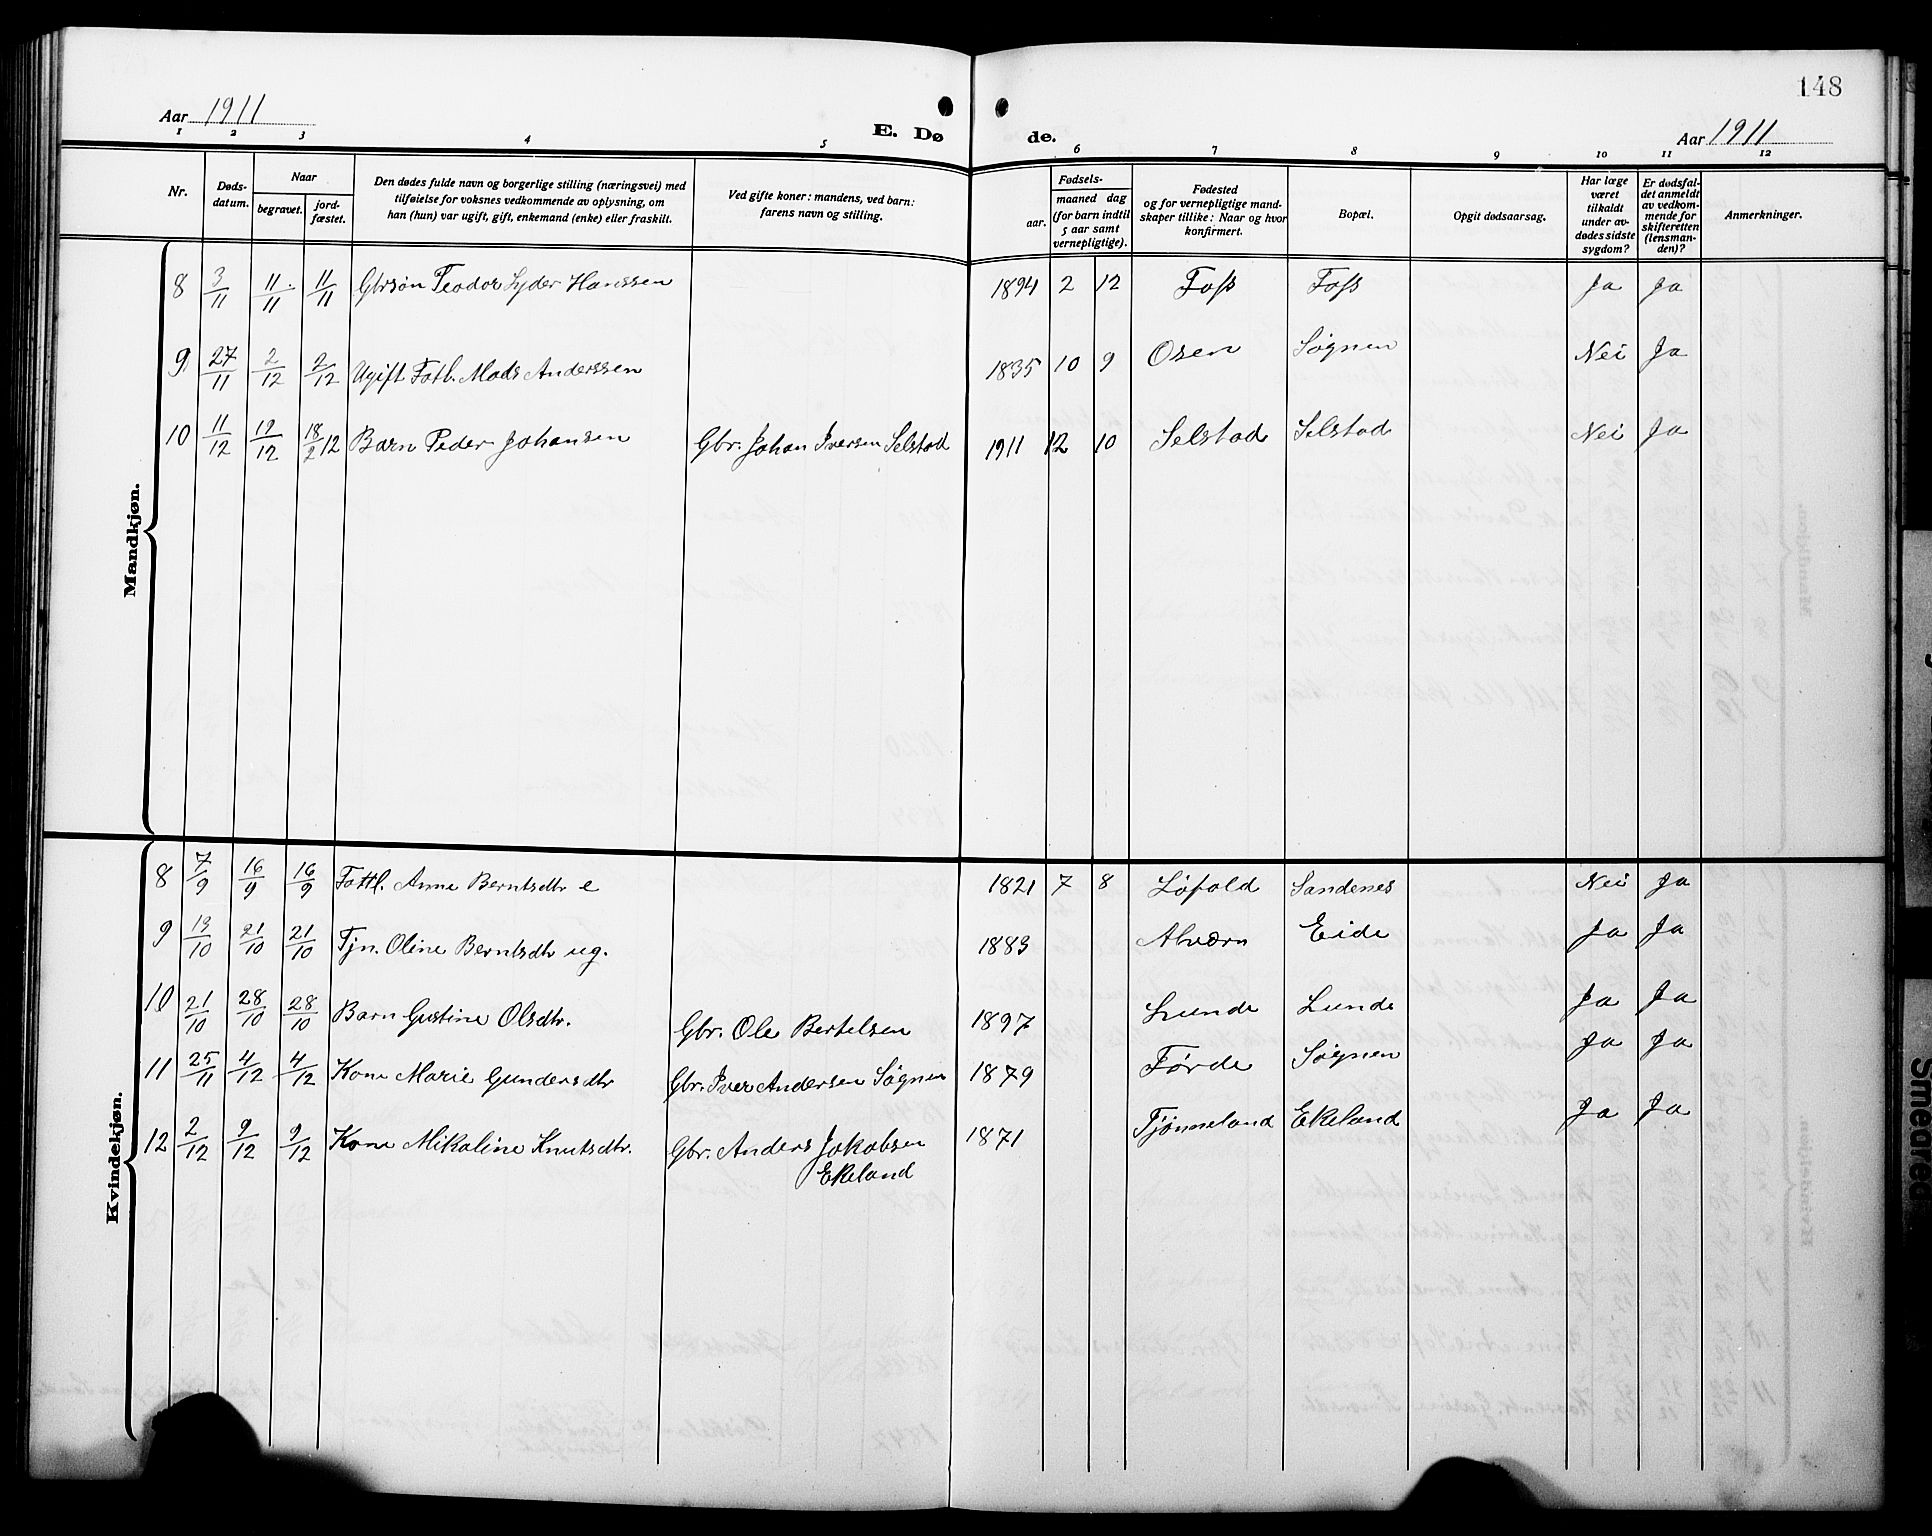 148
Aar 1911
E. Dø de.
Aar 1911
1 2 3 4 5 6 7 8 9 10 11 12
Nr.
Døds-
datum.
Naar
begravet.
jord-
fæstet.
Den dødes fulde navn og borgerlige stilling (næringsvei) med
tilføielse for voksnes vedkommende av oplysning, om
han (hun) var ugift, gift, enkemand (enke) eller fraskilt.
Ved gifte koner: mandens, ved barn:
farens navn og stilling.
Fødsels-
aar.
maaned dag
(for barn indtil
5 aar samt
vernepligtige).
Fødested
og for vernepligtige mand-
skaper tillike: Naar og hvor
konfirmert.
Bopæl.
Opgit dødsaarsag.
Har læge
været
tilkaldt
under av-
dødes sidste
sygdom?
Er dødsfal-
det anmeldt
av vedkom-
mende for
skifteretten
(lensman-
den)?
Anmerkninger.
Mandkjøn.
8 3/11 11/11 11/11 Gbrsøn Teodor Lyder Hanssen 1894 2 12 Foss Foss Ja Ja
9 27/11 2/12 2/12 Ugift Fatl. Mads Anderssen 1835 10 9 Osen Søgnen Nei Ja
10 11/12 19/12 18/2 12 Barn Peder Johansen Gbr. Johan Iversen Selstad 1911 12 10 Selstad Selstad Nei Ja
Kvindekjøn.
8 7/9 16/9 16/9 Fattl. Anne Berntsdtr e 1821 7 8 Løfald Sandenes Nei Ja
9 13/10 21/10 21/10 Tjn. Oline Berntsdtr ug. 1883 Alværn Eide Ja Ja
10 21/10 28/10 28/10 Barn Gustine Olsdtr. Gbr. Ole Bertelsen 1897 Lunde Lunde Ja Ja
11 25/11 4/12 4/12 Kone Marie Gundersdtr Gbr. Iver Andersen Søgnen 1879 Førde Søgnen Ja Ja
12 2/12 9/12 9/12 Kone Mikaline Knutsdtr. Gbr. Anders Jakobsen 1871 Tjønneland Ekeland Ja Ja
Ekeland
Smeared